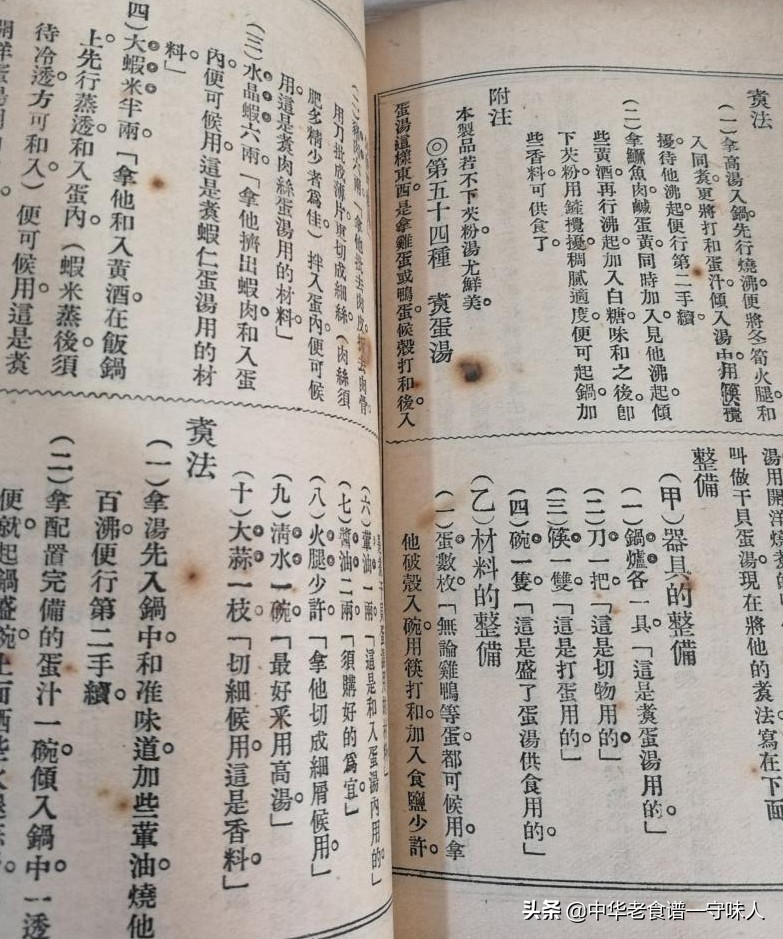 煑法
（一）拿高湯入鍋。先行燒沸。便將冬筍火腿和
入同煑。更將打和蛋汁傾入湯中。用筷攪
擾。待他沸起。便行第二手續。
（二）拿鱖魚肉鹹蛋黃同時加入。見他沸起。傾
些黃酒。再行沸起。加入白糖。味和之後。卽
下芡粉。用鏟攪擾。稠膩適度。便可起鍋。加
些香料。可供食了
附注
本製品若不下芡粉。湯尤鮮美。
◎第五十四種　煑蛋湯
蛋湯這樣東西。是拿雞蛋或鴨蛋。候殼打和後。入
湯用開洋燒煑
叫做干貝蛋湯。現在將他的煑法。寫在下面
整備
（甲）器具的整備
（一）鍋爐各一具。「這是煑蛋湯用的」
（二）刀一把。「這是切物用的」
（三）筷一雙。「這是打蛋用的」
（四）碗一隻。「這是盛了蛋湯供食用的」
（乙）材料的整備
（一）蛋數枚。「無論雞鴨等蛋。都可候用。拿
他破殼入碗。用筷打和。加入食鹽少許。
用刀批成薄片。更切成細絲。（肉絲須
肥多精少者爲佳）拌入蛋內。便可候
用。這是煑肉絲蛋湯用的材料」
（三）水晶蝦六兩。「拿他擠出蝦肉。和入蛋
內。便可候用。這是煑蝦仁蛋湯用的材
料」
（四）大蝦米半兩。「拿他和入黃酒。在飯鍋
上先行蒸透。和入蛋內。（蝦米蒸後。須
待冷透。方可和入）便可候用。這是煑
（六）葷油一兩。「這是和入蛋湯內用的」
（七）醬油二兩。「須購好的爲宜」
（八）火腿少許。「拿他切成細屑候用」
（九）淸水一碗。「最好釆用高湯」
（十）大蒜一枝。「切細候用。這是香料」
煑法
（一）拿湯先入鍋中。和准味道。加些葷油。燒他
百沸。便行第二手續。
（二）拿配置完備的蛋汁一碗。傾入鍋中。一透
便就起鍋盛碗。上面洒些火腿
头条 @中华老食谱一守味人